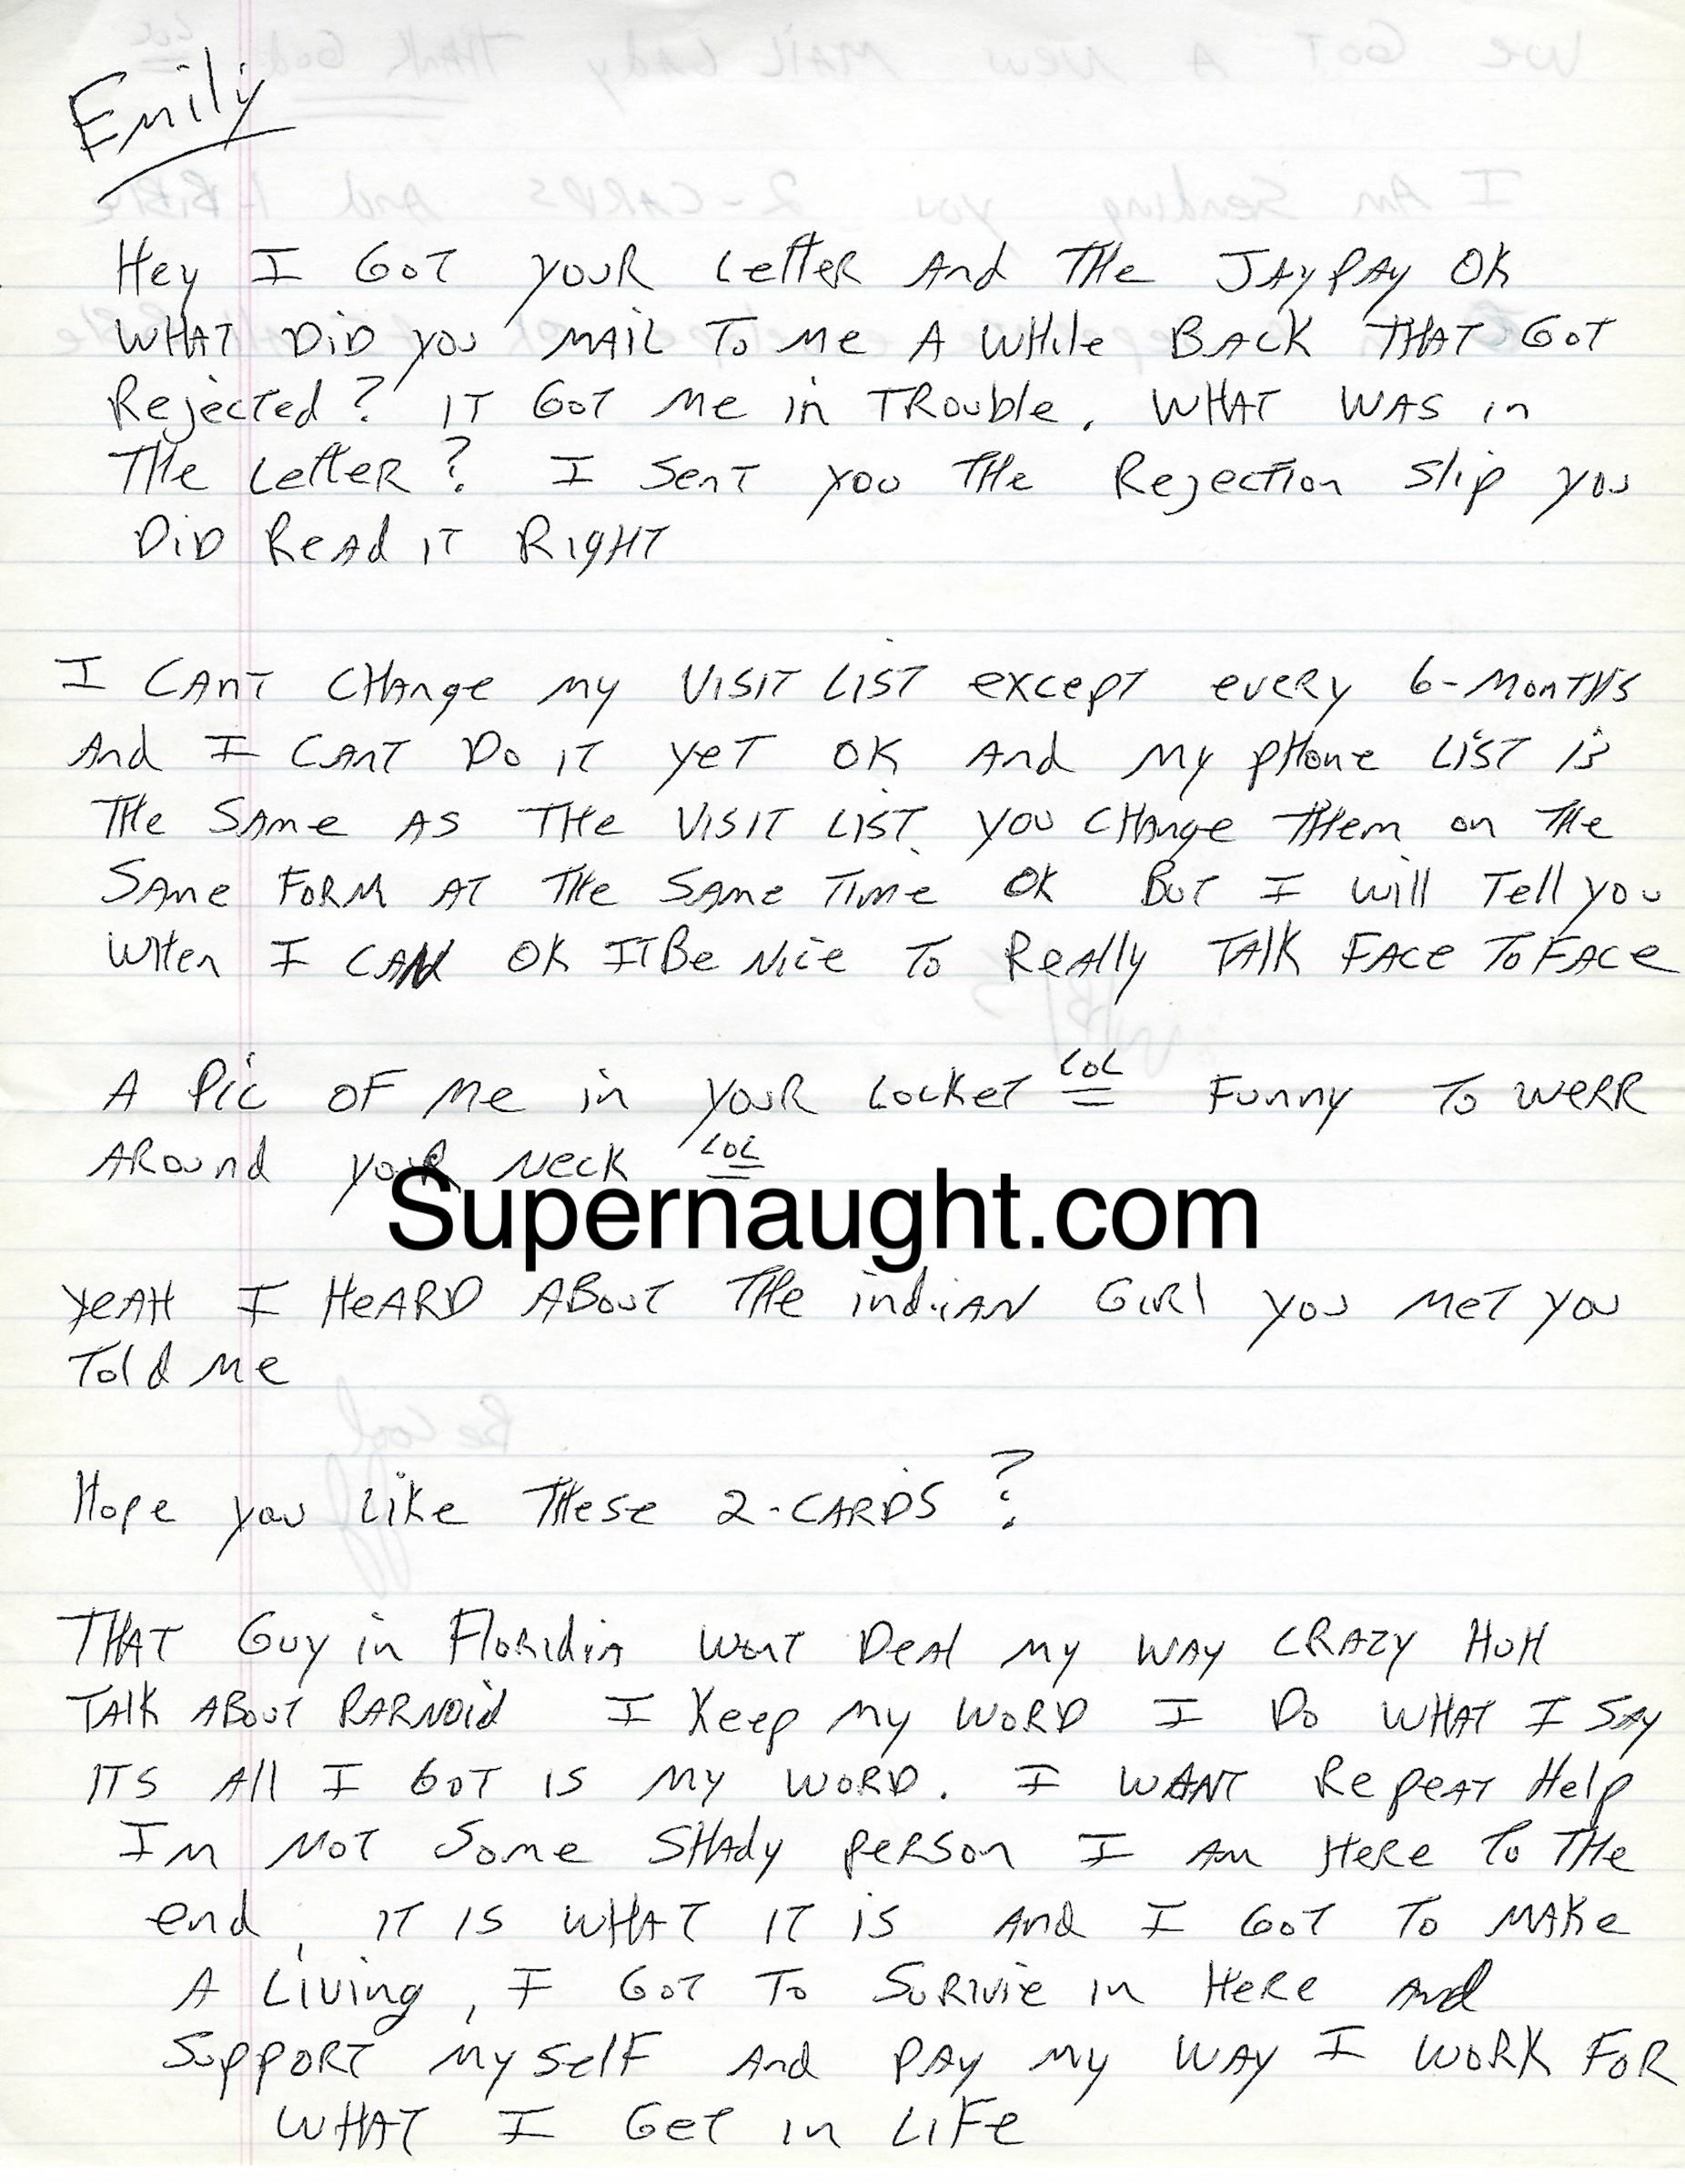 Emily
Hey I GoT youR Letter And THe JAyPAy OK
WHAT DiD you MAiL To Me A WHile BACK THAT GoT
Rejected? IT GoT Me in TRouble. WHAT WAS in
THe Letter? I SenT you THe Rejection Slip you
DiD ReAd IT RigHT
I CAnT CHAnge my VISIT LIST except eveRy 6-MonTHS
And I CAnT Do IT yeT OK And My pHone LIST is
THe SAme AS THe VISIT LIST you CHAnge THem on THe
SAme FoRM AT THe SAme Time OK BuT I will Tell you
WHen I CAN OK ITBe Nice To ReAlly TAlk FAce To FAce
A Pic OF Me in youR LockeT LOL Funny To weRR
ARound youR Neck LOL
Supernaught.com
yeAH I HeARD ABouT THe indiAN GiRl you MeT you
Told Me
Hope you Like THese 2-CARDS?
THAT Guy in FloRidiA wonT DeAl my WAy CRAZY HuH
TAlk ABouT PARNoid I Keep My WORD I Do WHAT I SAy
ITS All I GoT IS My WORD. I WANT RepeAT Help
Im NoT Some SHAdy peRson I Am HeRe To THe
end, IT IS WHAT IT iS And I GoT To MAKe
A Living, I GoT To SuRivie in HeRe And
SuppoRT My SelF And PAy my WAy I WoRK FoR
WHAT I GeT in LiFe